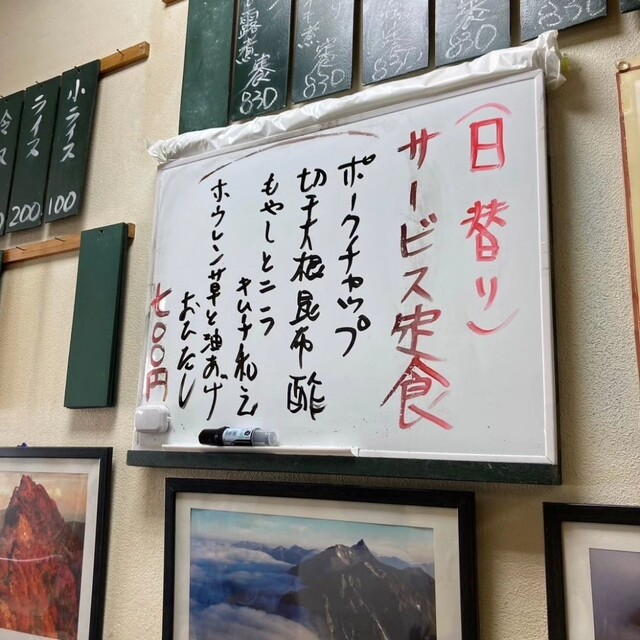 (日替り)
サービス定食
ポークチャップ
切干大根昆布酢
もやしとニラ
キムチ和え
ホウレン草と油あげ
おひたし
七〇〇円
小ライス
100
ライス
200
露煮
830
830
830
830
850